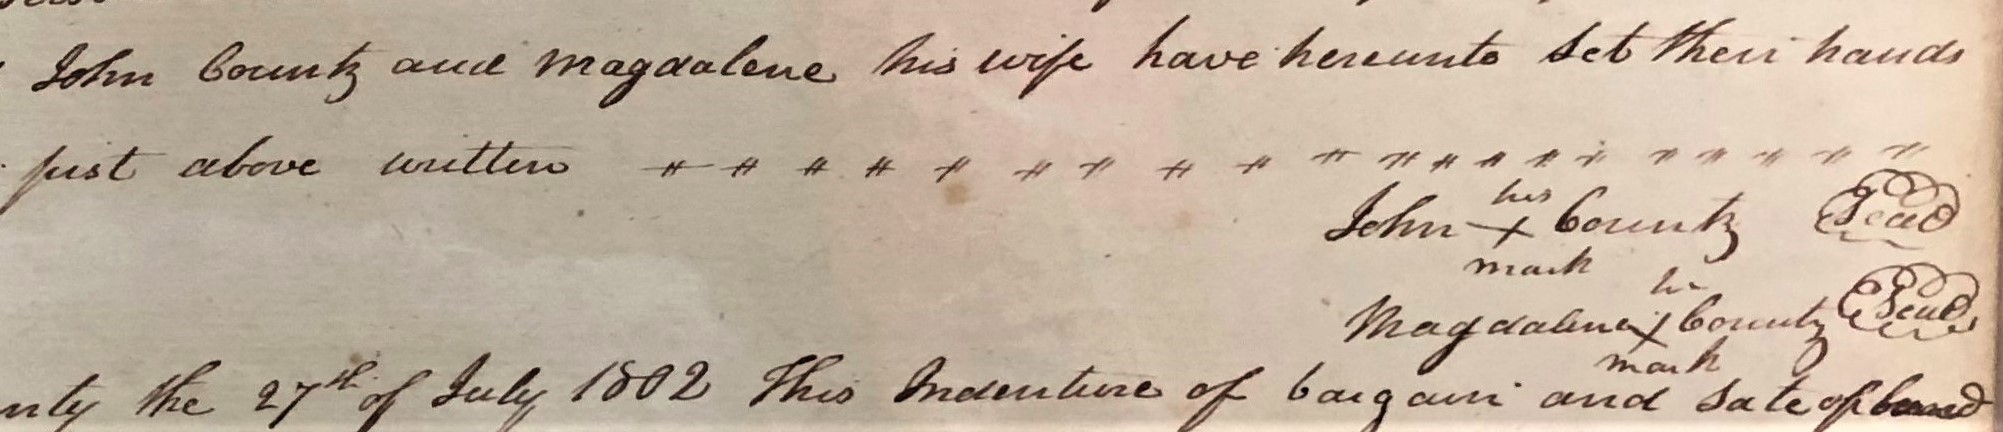 John Countz and Magdalene his wife have hereunto Set their hands
first above written # # # # # # # # # # # # # # # # # # # #
his
John + Countz Seal
mark
her
Magdalene + Countz Seal
mark
nty the 27th of July 1802 This Indenture of bargain and Sale of